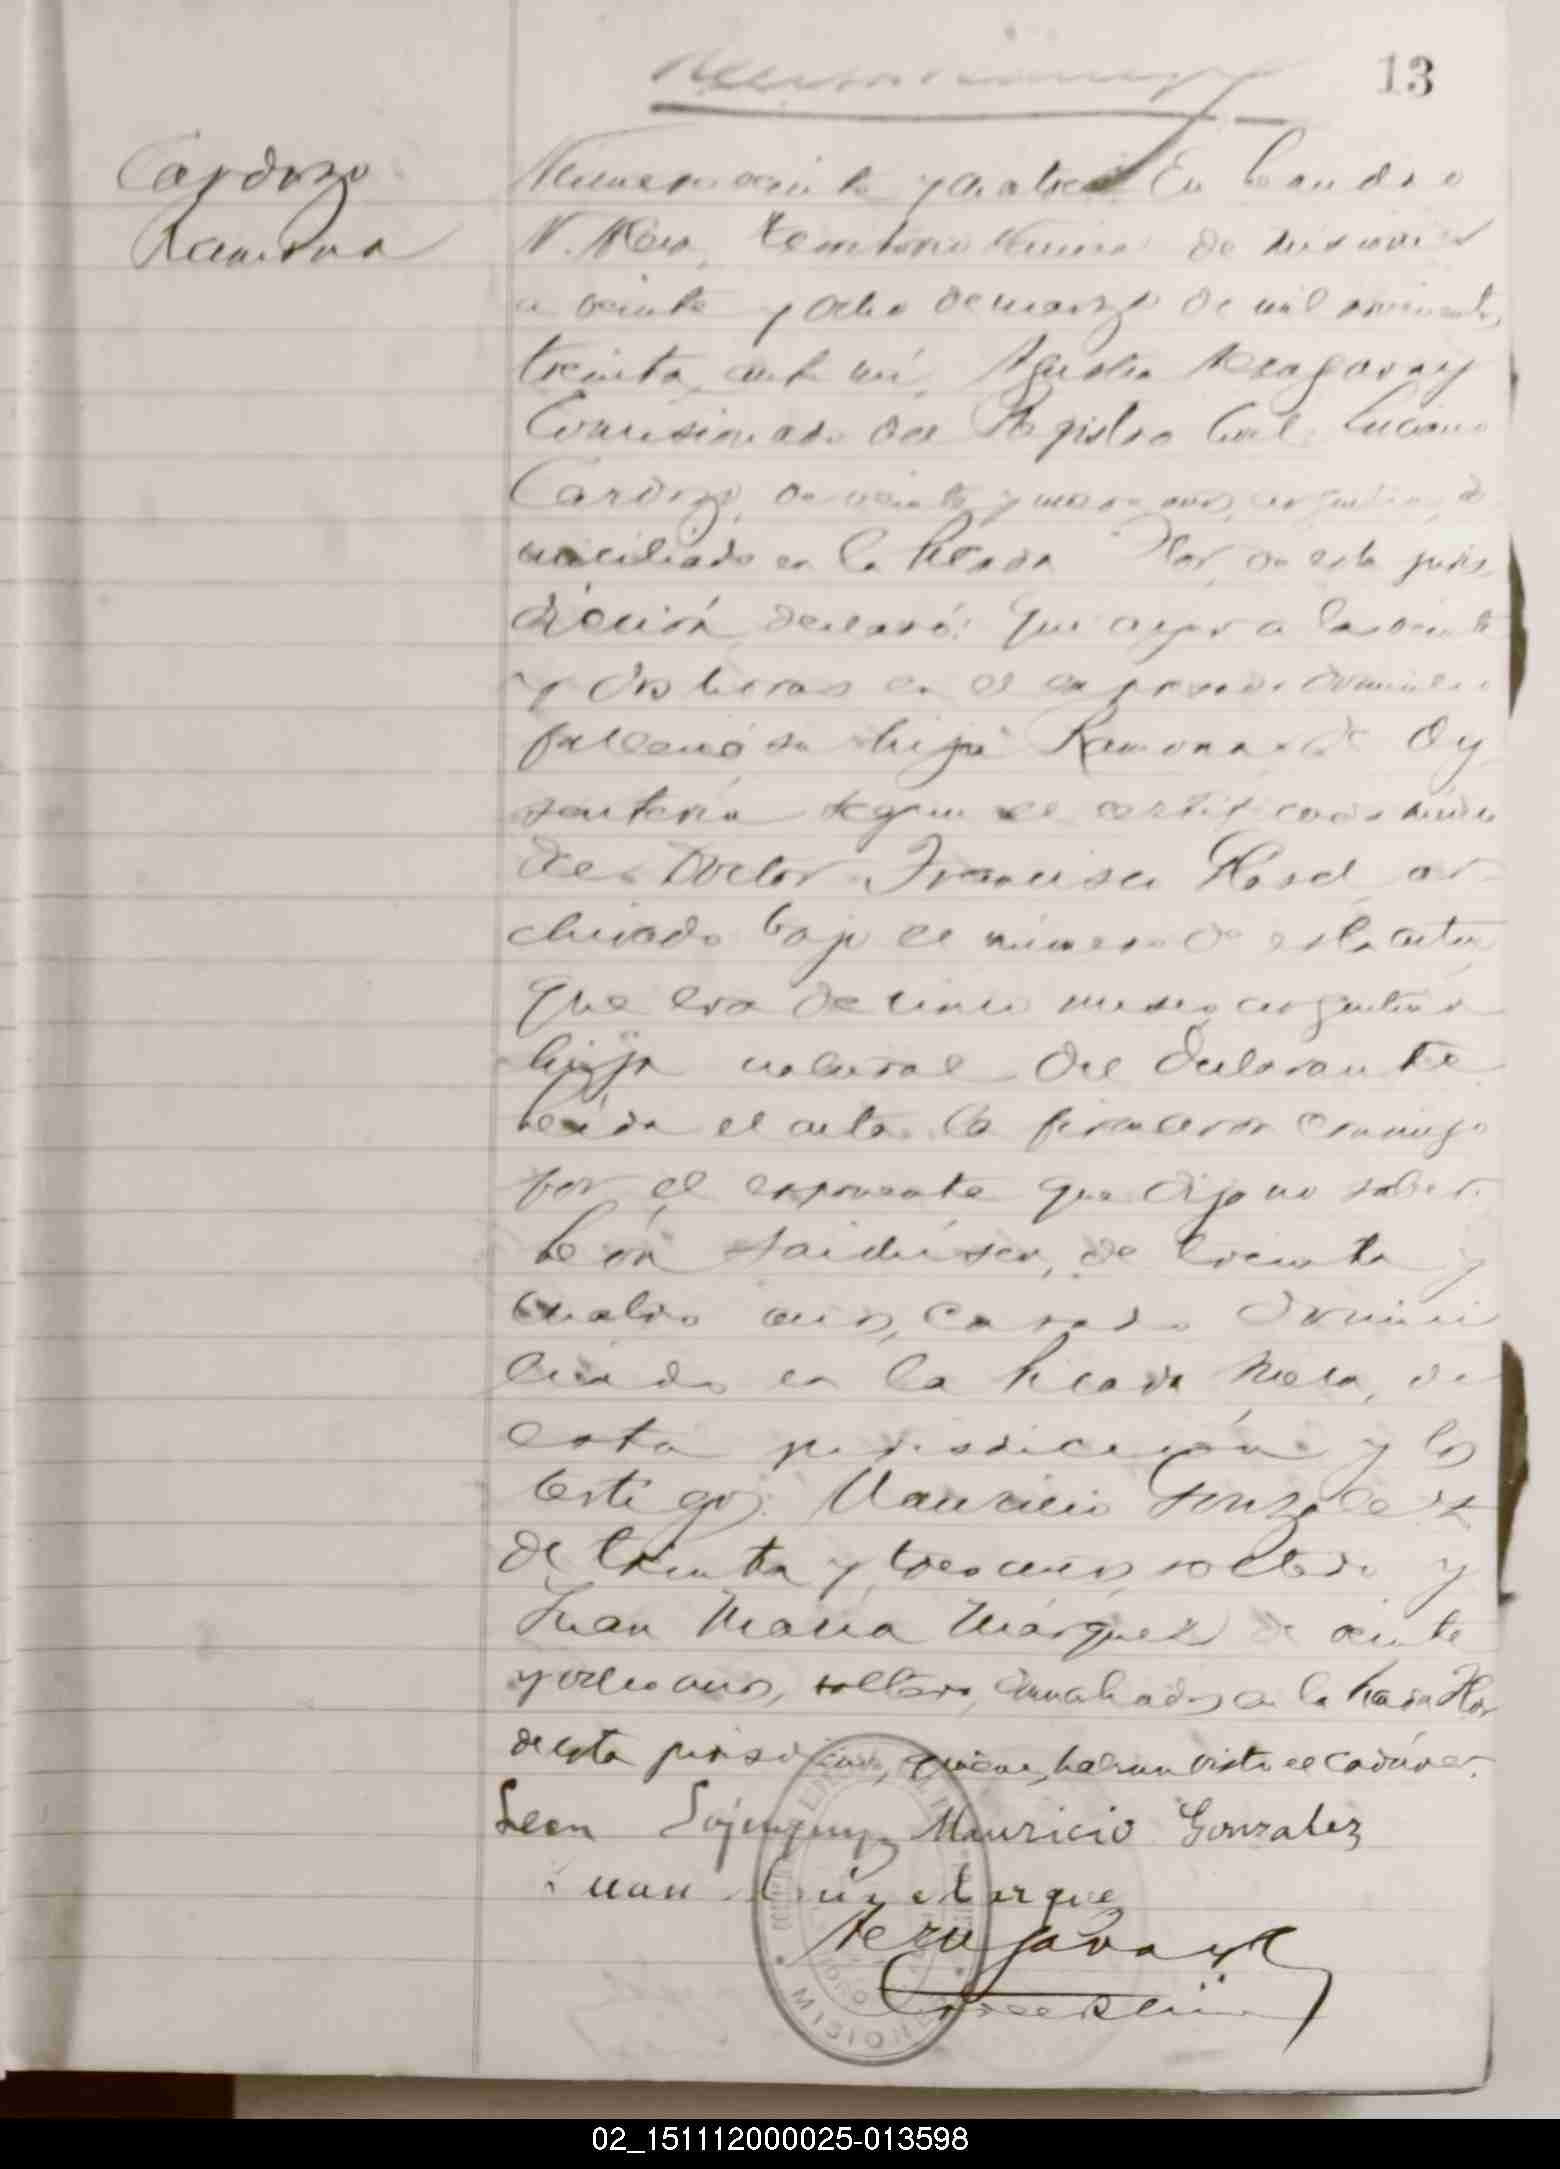 13
Cardozo
Ramona
Numero veinte y cuatro En Leandro
N. Alem, territorio de Misiones
a veinte y ocho de marzo de mil novecientos
treinta, ante mí, Agustin Aezagavay
Comisionado del Registro Civil, Luciano
Cardozo, de veinte y nueve años, argentino, do
miciliado en la Picada Flor, de esta juris
dicción, declaró: Que ayer a las veinte
y dos horas en el expresado domicilio
falleció su hija Ramona de dy
sentería segun el certificado
del Doctor Francisco ar
chivado bajo el número de esta acta
Que era de cinco meses, argentina
hija natural del declarante
Leída el acta la firmaron conmigo
por el exponente que dijo no saber
León de treinta y
cuatro años, casado domici
liado en la Picada de
esta jurisdicción y los
testigos: Mauricio Gonzalez
de treinta y tres años, soltero y
Juan María Márquez de veinte
y ocho años, soltero, domiciliados en la Picada Flor
de esta jurisdicción, quienes habian visto el cadáver.
Leon Mauricio Gonzalez
Juan Marque
MISIONES
02_151112000025-013598